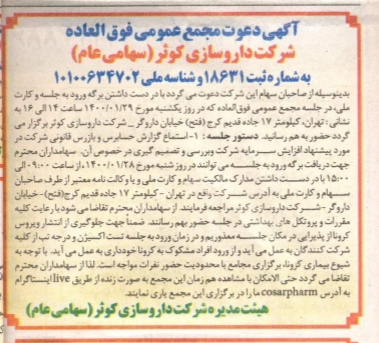 آگهی دعوت مجمع عمومی فوق العاده
شرکت داروسازی کوثر (سهامی عام)
به شماره ثبت ۱۸۶۳۱ و شناسه ملی ۱۰۱۰۰۶۳۴۷۰۲
بدینوسیله از صاحبان سهام این شرکت دعوت می گردد با در دست داشتن برگه ورود به جلسه و کارت
ملی، در جلسه مجمع عمومی فوق العاده که در روز یکشنبه مورخ ۱۴۰۰/۰۱/۲۹ ساعت ۱۴ الی ۱۶ به
نشانی: تهران، کیلومتر ۱۷ جاده قدیم کرج (فتح) خیابان داروگر _ شرکت داروسازی کوثر برگزار می
گردد حضور به هم رسانید. دستور جلسه: ۱- استماع گزارش حسابرس و بازرس قانونی شرکت در
مورد پیشنهاد افزایش سرمایه شرکت وبررسی و تصمیم گیری در خصوص آن. سهامداران محترم
جهت دریافت برگه ورود به جلسه می توانند در روز شنبه مورخ ۱۴۰۰/۰۱/۲۸، از ساعت ۰۹:۰۰ الی
۱۵:۰۰ با در دست داشتن مدارک مالکیت سهام و کارت ملی و یا وکالت نامه معتبر از طرف صاحبان
سهام و کارت ملی به آدرس شرکت واقع در تهران - کیلومتر ۱۷ جاده قدیم کرج(فتح) - خیابان
داروگر - شرکت داروسازی کوثر مراجعه فرمایند. از سهامداران محترم تقاضا می شود با رعایت کلیه
مقررات و پروتکل های بهداشتی در جلسه حضور بهم رسانند. ضمنا جهت جلوگیری از انتشار ویروس
کرونا از پذیرایی در مکان جلسه معذوریم و در زمان ورود به جلسه تست اکسیژن و درجه تب از کلیه
شرکت کنندگان به عمل می آید و از ورود افراد مشکوک به کرونا خودداری به عمل می آید. با توجه به
شیوع بیماری کرونا، برگزاری مجامع با محدودیت حضور نفرات مواجه است. لذا از سهامداران محترم
تقاضا می گردد حتی الامکان با مشاهده هم زمان این مجمع به صورت زنده از طریق live اینستاگرام
به آدرس cosarpharm ما را در برگزاری این مجمع یاری نمایند.
هیئت مدیره شرکت داروسازی کوثر (سهامی عام)